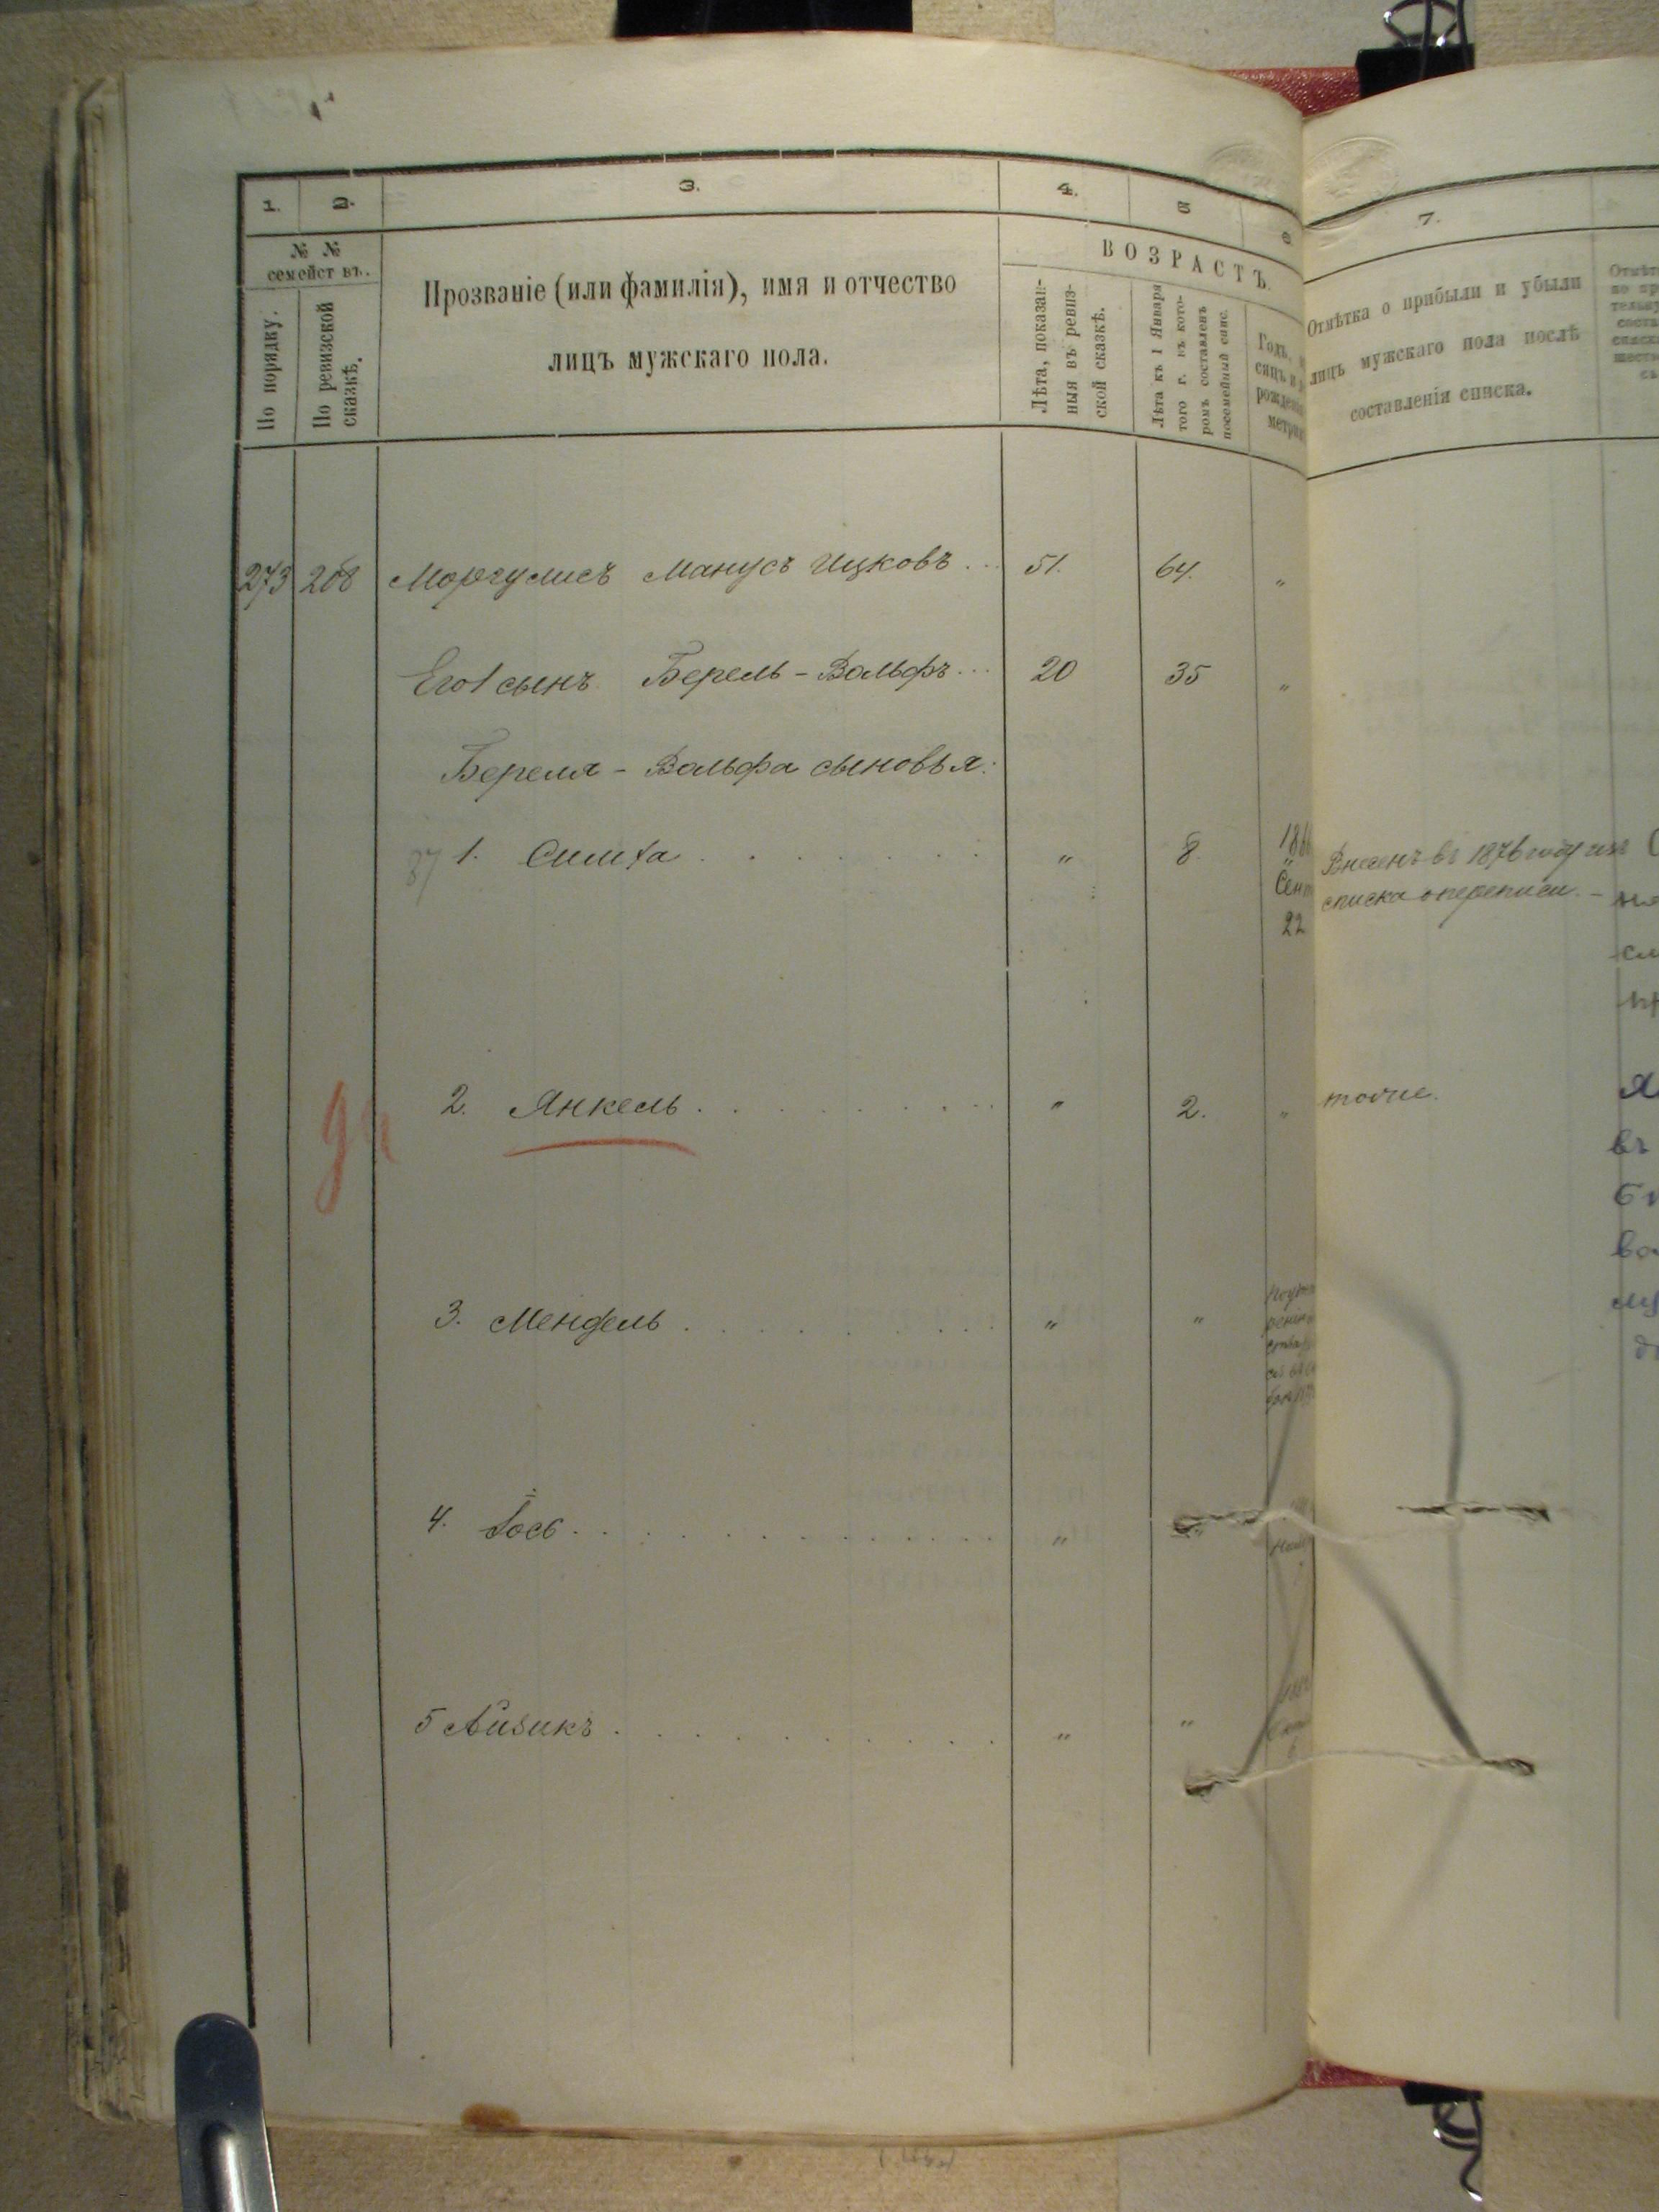 1.
2.
3.
4.
5
6
7.
№ №
семействъ.
По порядку.
По ревизской
сказкѣ.
Прозваніе (или фамилія), имя и отчество
лицъ мужскаго пола.
ВОЗРАСТЪ.
Лѣта, показан-
ныя въ ревиз-
ской сказкѣ.
Лѣта къ 1 Января
того г. въ кото-
ромъ составленъ
посемейный спис.
Годъ,
рожден
метри
Отмѣтка о прибыли и убыли
лицъ мужскаго пола послѣ
составленія списка.
273 208 Моргулисъ Манусъ Ицковъ... 51. 64. "
Его 1 сынъ Берель-Вольфъ... 20 35 "
Береля-Вольфа сыновья:
37 1. Симха " 8. Внесенъ въ 1876 году изъ
Сен списка о переписи. -
22
2. Янкель " 2. " тоже.
3. Мендель " "
4. Іось " "
5 Айзикъ " "